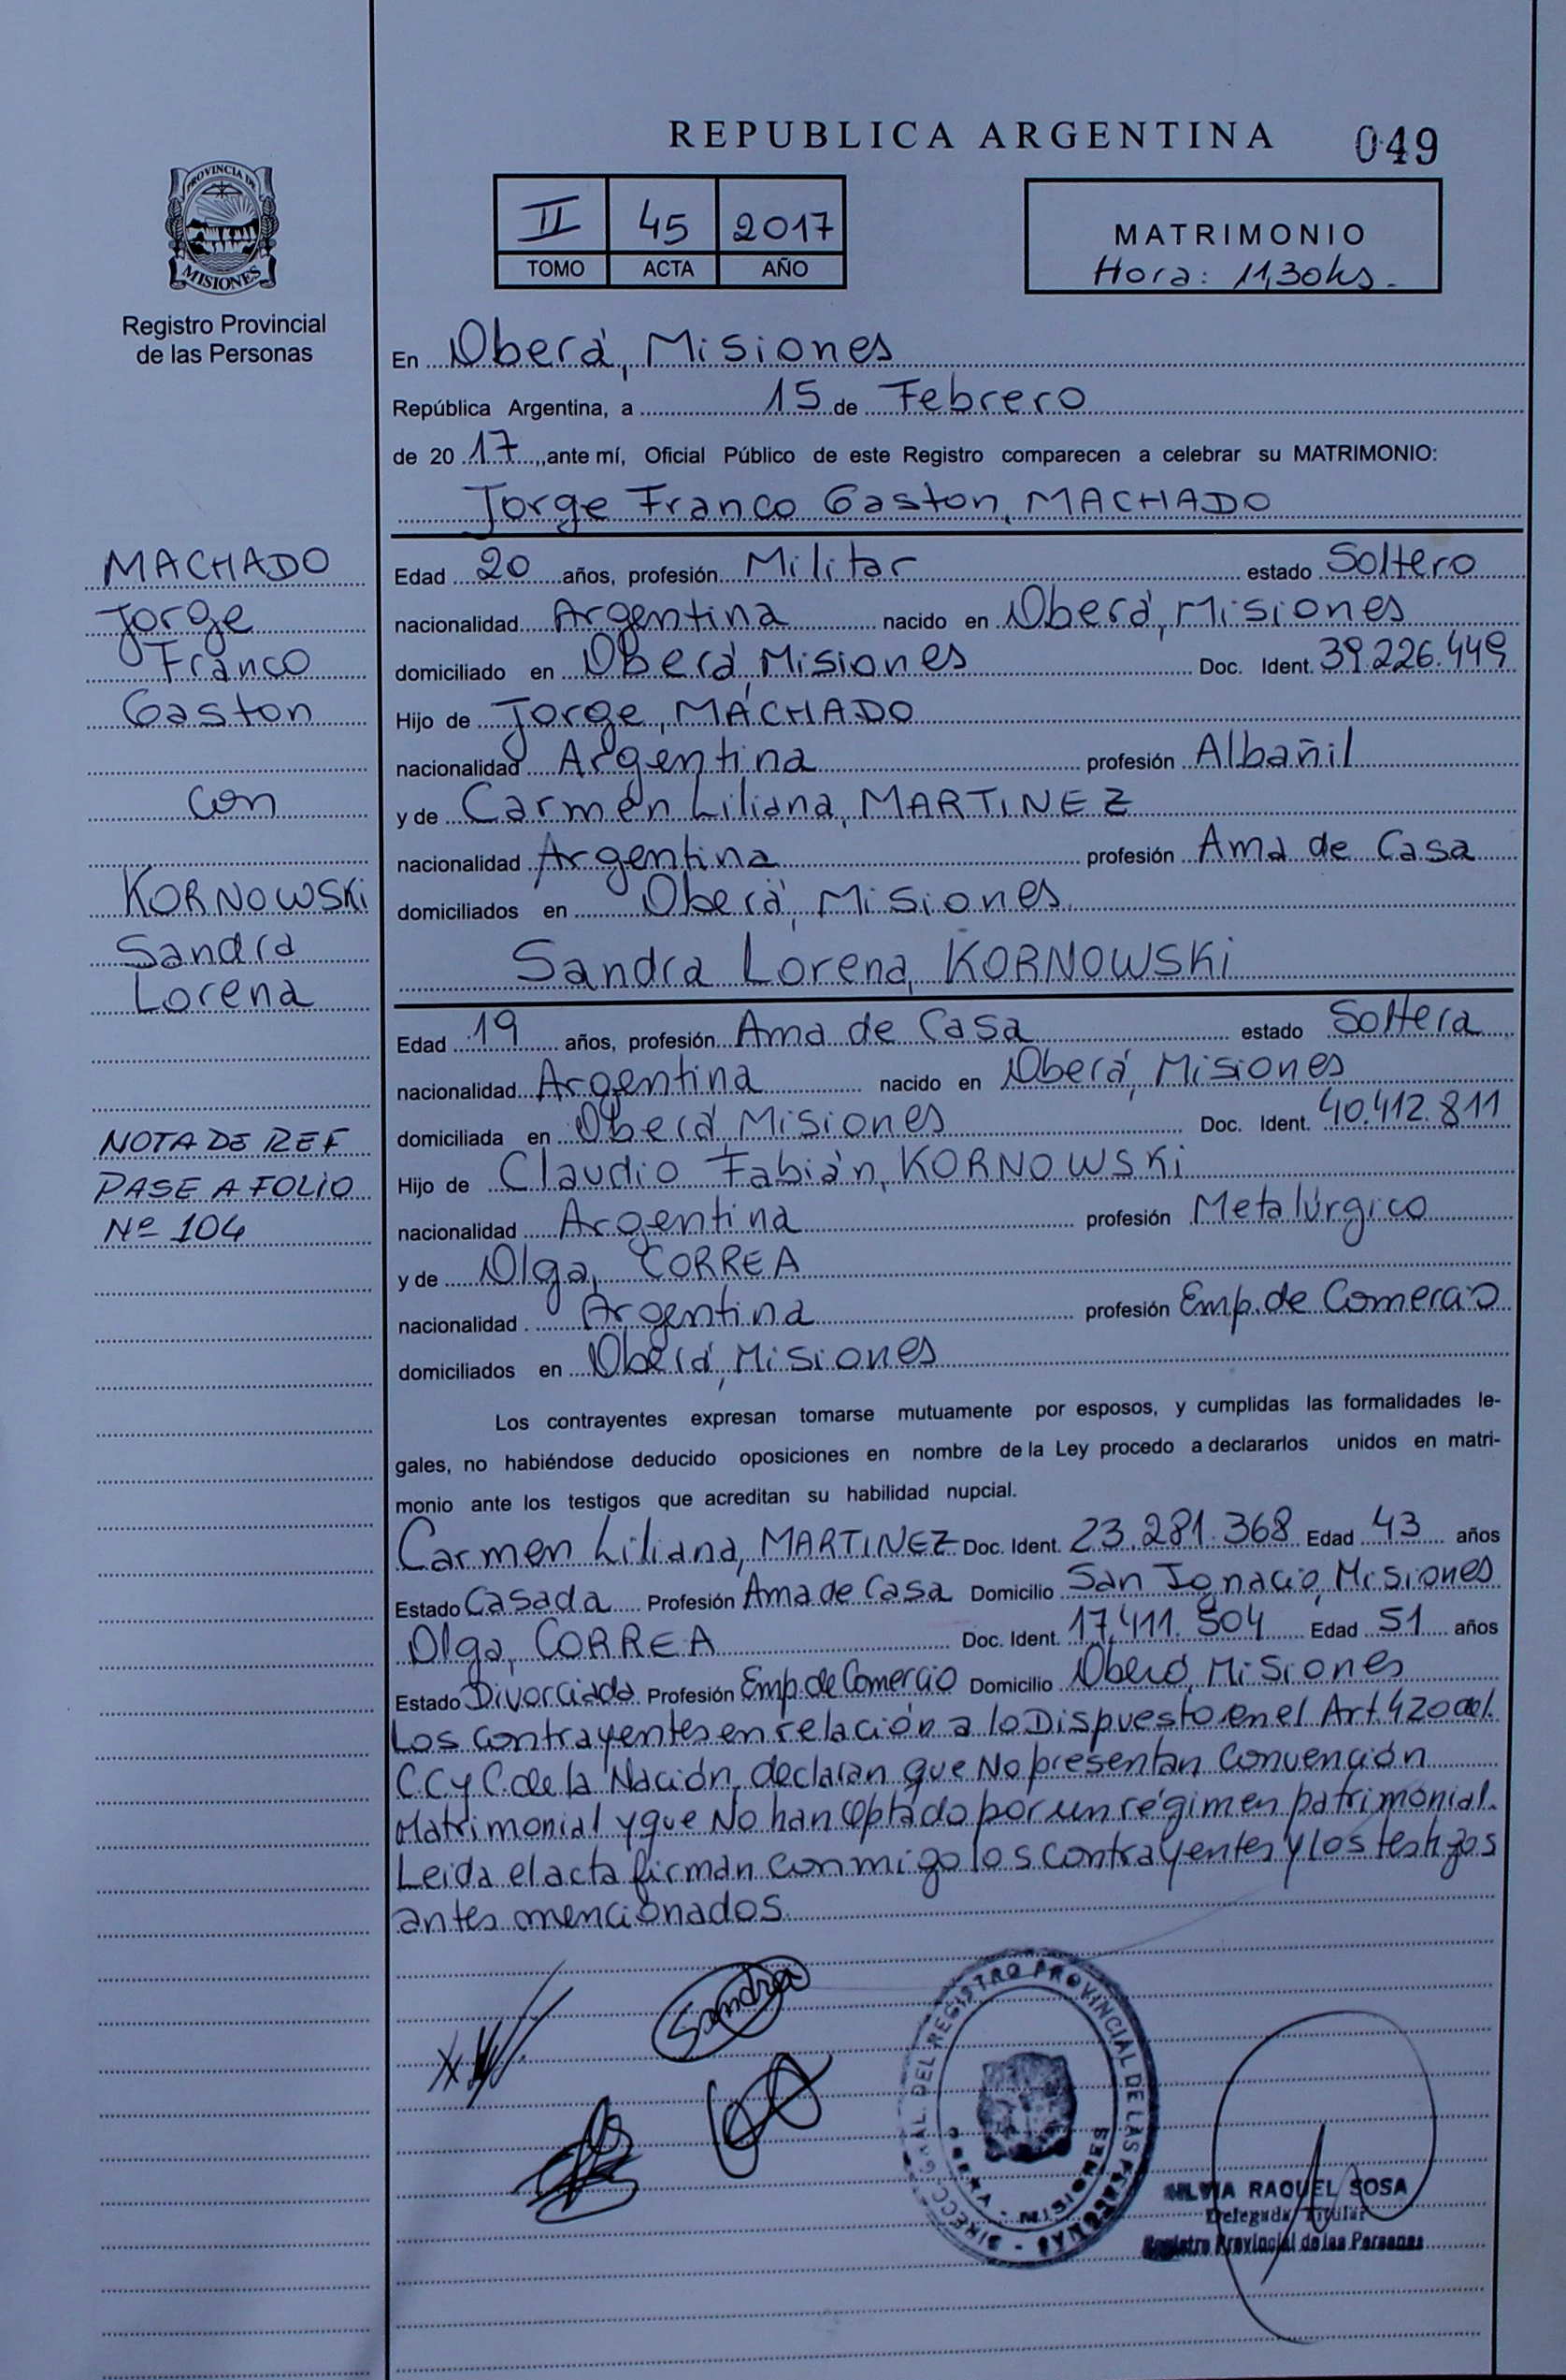 REPUBLICA ARGENTINA 049
PROVINCIA DE
MISIONES
Registro Provincial
de las Personas
II 45 2017
TOMO ACTA AÑO
MATRIMONIO
Hora: 11,30hs.
En Oberá, Misiones
República Argentina, a 15 de Febrero
de 20 17, ante mí, Oficial Público de este Registro comparecen a celebrar su MATRIMONIO:
Jorge Franco Gaston, MACHADO
MACHADO
Jorge
Franco
Gaston
con
KORNOWSKi
Sandra
Lorena
NOTA DE REF
PASE A FOLIO
Nº 104
Edad 20 años, profesión Militar estado Soltero
nacionalidad Argentina nacido en Oberá, Misiones
domiciliado en Oberá, Misiones Doc. Ident. 39.226.449
Hijo de Jorge, MACHADO
nacionalidad Argentina profesión Albañil
y de Carmen Liliana, MARTINEZ
nacionalidad Argentina profesión Ama de Casa
domiciliados en Oberá, Misiones.
Sandra Lorena, KORNOWSKi
Edad 19 años, profesión Ama de Casa estado Soltera
nacionalidad Argentina nacido en Oberá, Misiones
domiciliada en Oberá, Misiones Doc. Ident. 40.412.811
Hijo de Claudio Fabián, KORNOWSKi
nacionalidad Argentina profesión Metalúrgico
y de Olga, CORREA
nacionalidad Argentina profesión Emp. de Comercio
domiciliados en Oberá, Misiones
Los contrayentes expresan tomarse mutuamente por esposos, y cumplidas las formalidades le-
gales, no habiéndose deducido oposiciones en nombre de la Ley procedo a declararlos unidos en matri-
monio ante los testigos que acreditan su habilidad nupcial.
Carmen Liliana, MARTINEZ Doc. Ident. 23.281.368 Edad 43 años
Estado Casada Profesión Ama de Casa Domicilio San Ignacio, Misiones
Olga, CORREA Doc. Ident. 17.411.504 Edad 51 años
Estado Divorciada Profesión Emp. de Comercio Domicilio Oberá, Misiones
Los contrayentes en relación a lo Dispuesto en el Art. 420 del
C.C y C. de la Nación, declaran que No presentan Convención
Matrimonial y que No han Optado por un régimen patrimonial.
Leida el acta firman conmigo los contrayentes y los testigos
antes mencionados.
Sandra
DIRECC. GRAL. DEL REGISTRO PROVINCIAL DE LAS PERSONAS
OBERA - MISIONES
SILVIA RAQUEL SOSA
Delegada Titular
Registro Provincial de las Personas